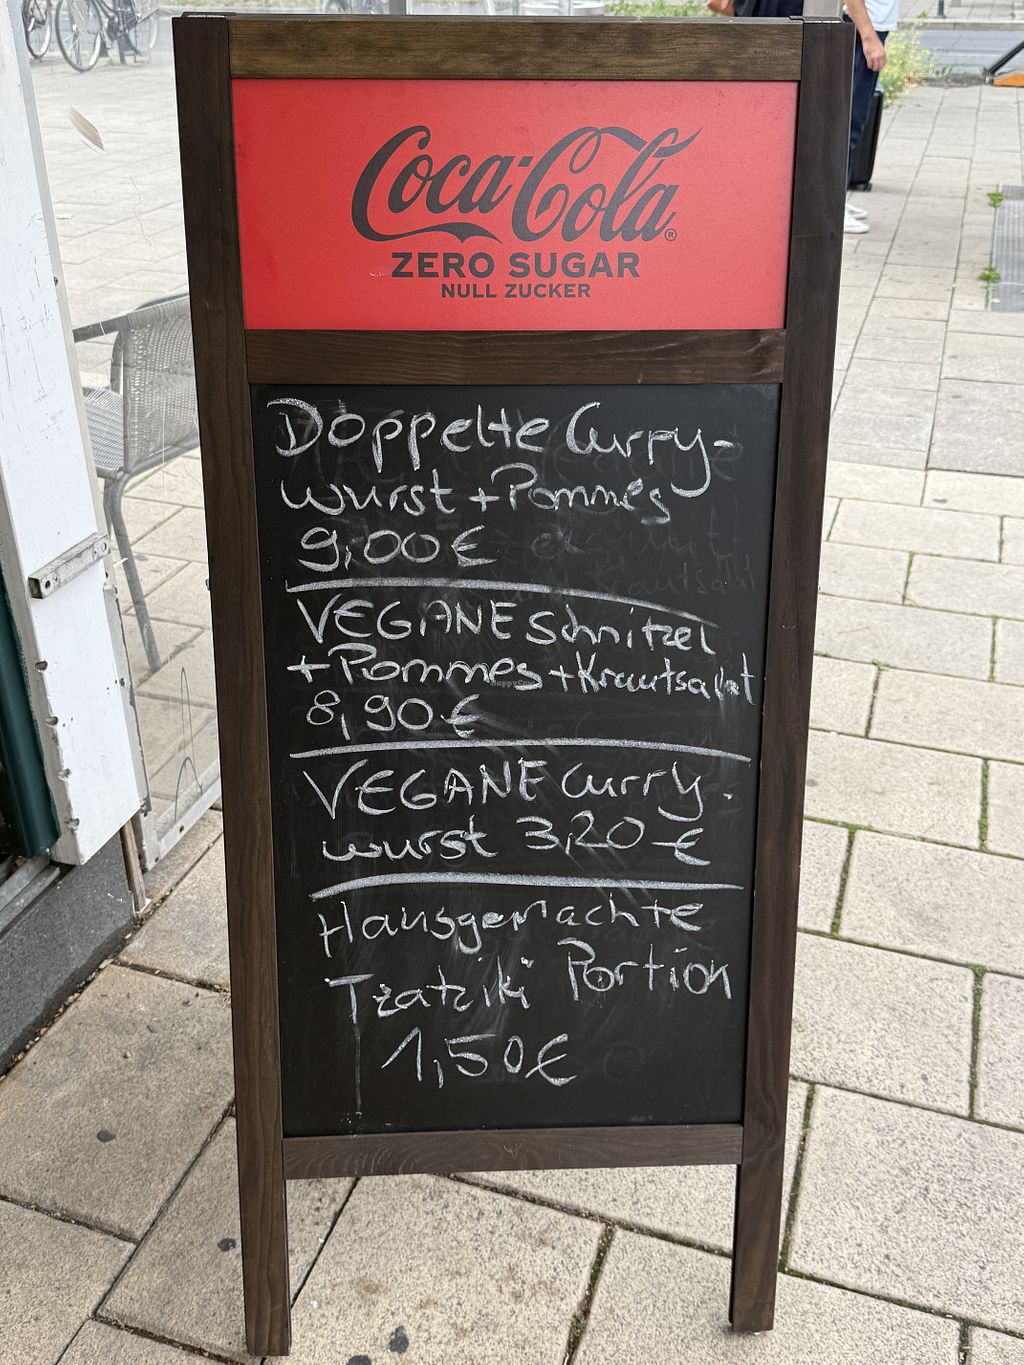 Coca-Cola®
ZERO SUGAR
NULL ZUCKER
Doppelte Curry-
wurst + Pommes
9,00€
VEGANE Schnitzel
+ Pommes + Krautsalat
8,90€
VEGANE Curry-
wurst 3,20 €
Hausgemachte
Tzatziki Portion
1,50€